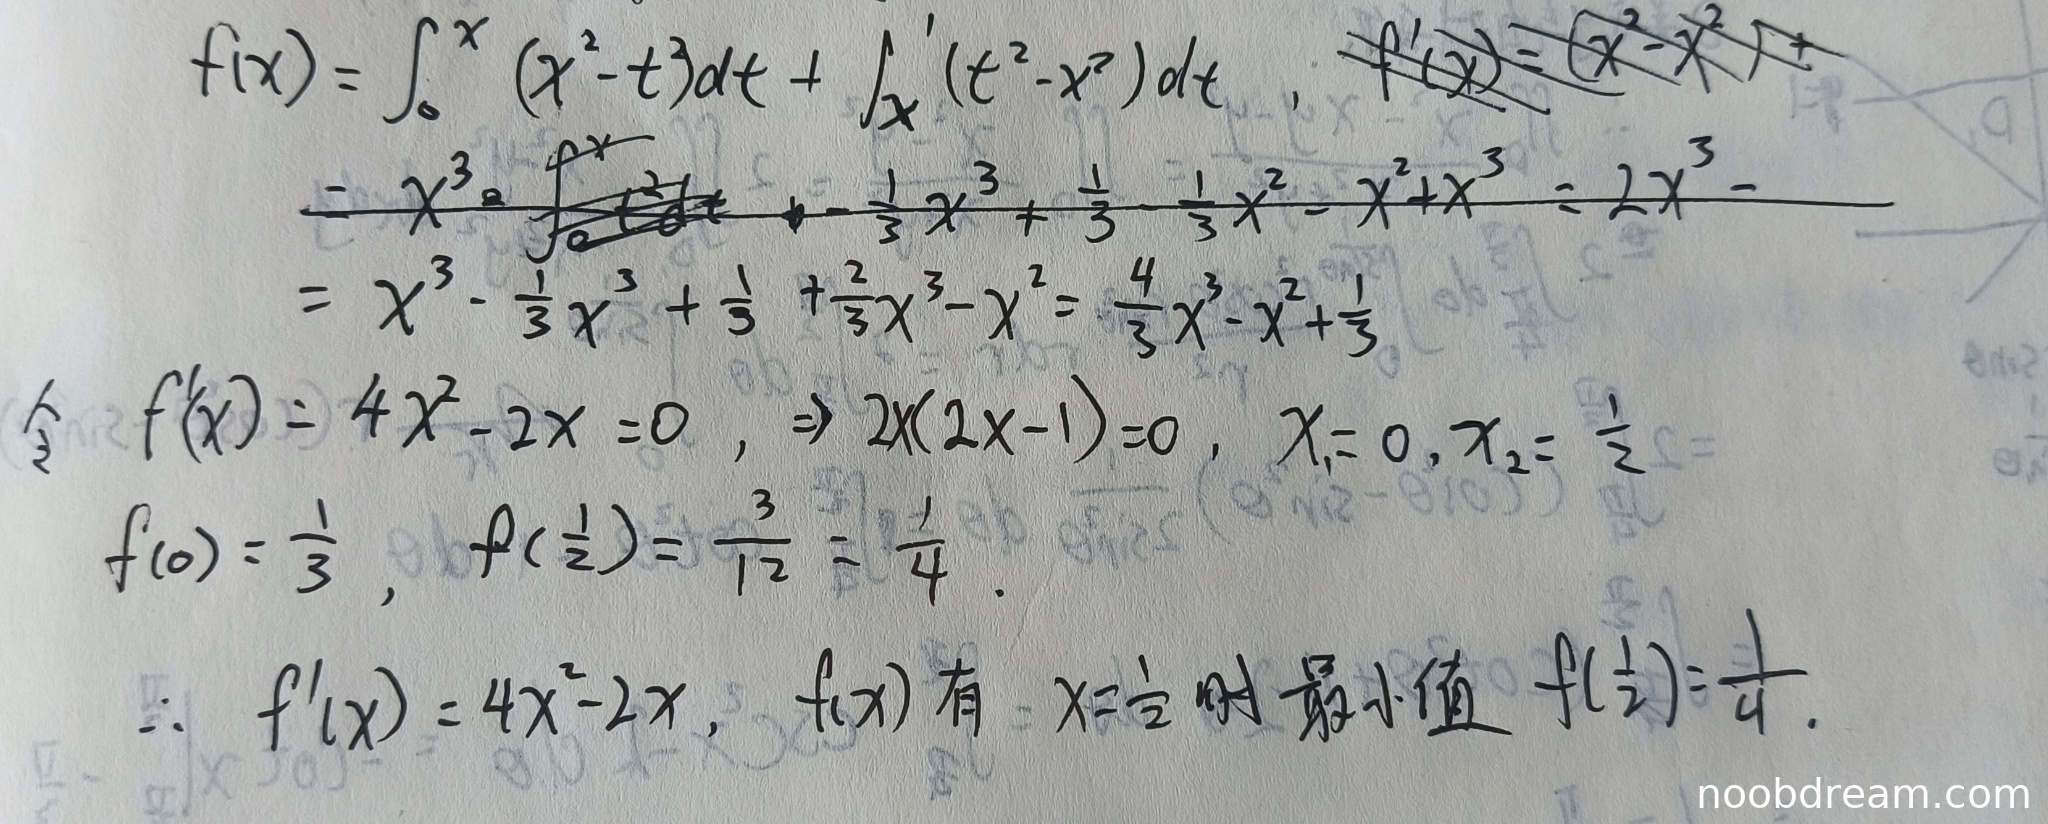 f(x) = ∫₀ˣ (x² - t²)dt + ∫ₓ¹ (t² - x²) dt , f'(x) = (x² - x²) +
= x³ - ∫₀ˣ t² dt + - 1/3 x³ + 1/3 - 1/3 x² - x² + x³ = 2x³ -
= x³ - 1/3 x³ + 1/3 + 2/3 x³ - x² = 4/3 x³ - x² + 1/3
令 f'(x) = 4x² - 2x = 0 , ⇒ 2x(2x-1) = 0 , x₁ = 0 , x₂ = 1/2
f(0) = 1/3 , f(1/2) = 3/12 = 1/4 .
∴ f'(x) = 4x² - 2x , f(x) 有 x = 1/2 时 最小值 f(1/2) = 1/4 .
noobdream.com